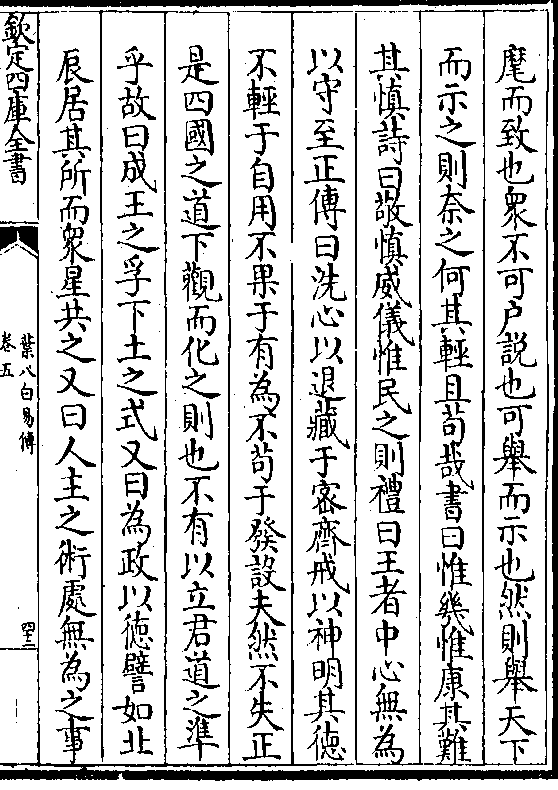 麾而致也衆不可户説也可舉而示也然則舉天下
而示之則奈之何其輕且茍哉書曰惟幾惟康其難
其慎詩曰敬慎威儀惟民之則禮曰王者中心無為
以守至正傳曰洗心以退藏于宻齊戒以神明其徳
不輕于自用不果于有為不茍于發設夫然不失正
是四國之道下觀而化之則也不有以立君道之準
乎故曰成王之孚下土之式又曰為政以徳譬如北
辰居其所而衆星共之又曰人主之術處無為之事
欽定四庫全書
葉八白易傳
卷五
四十二